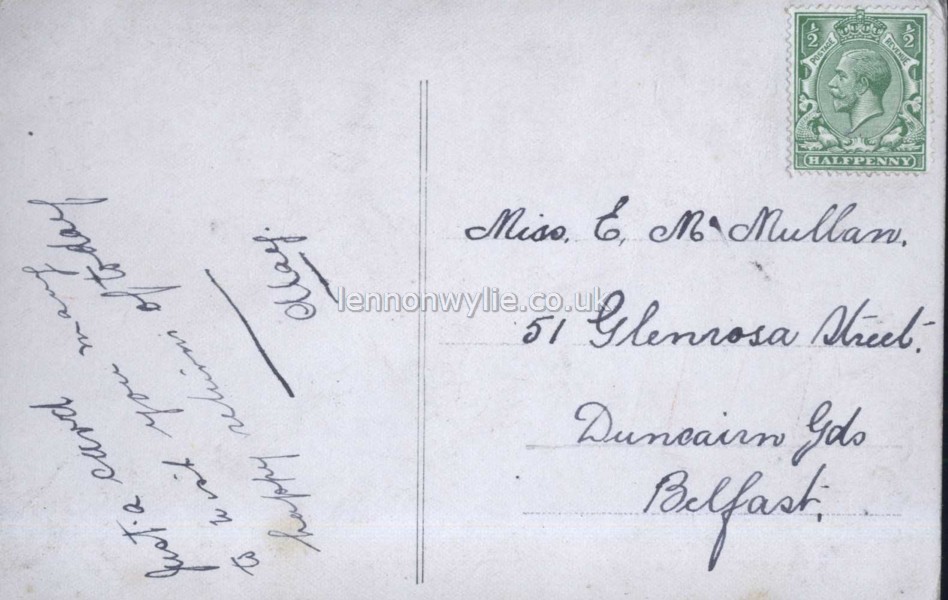 Just a Card
to wish you many
happy returns of today
May.
½ ½
POSTAGE REVENUE
HALFPENNY
Miss. E. Mc Mullan.
51 Glenrosa Street.
Duncairn Gds
Belfast.
lennonwylie.co.uk